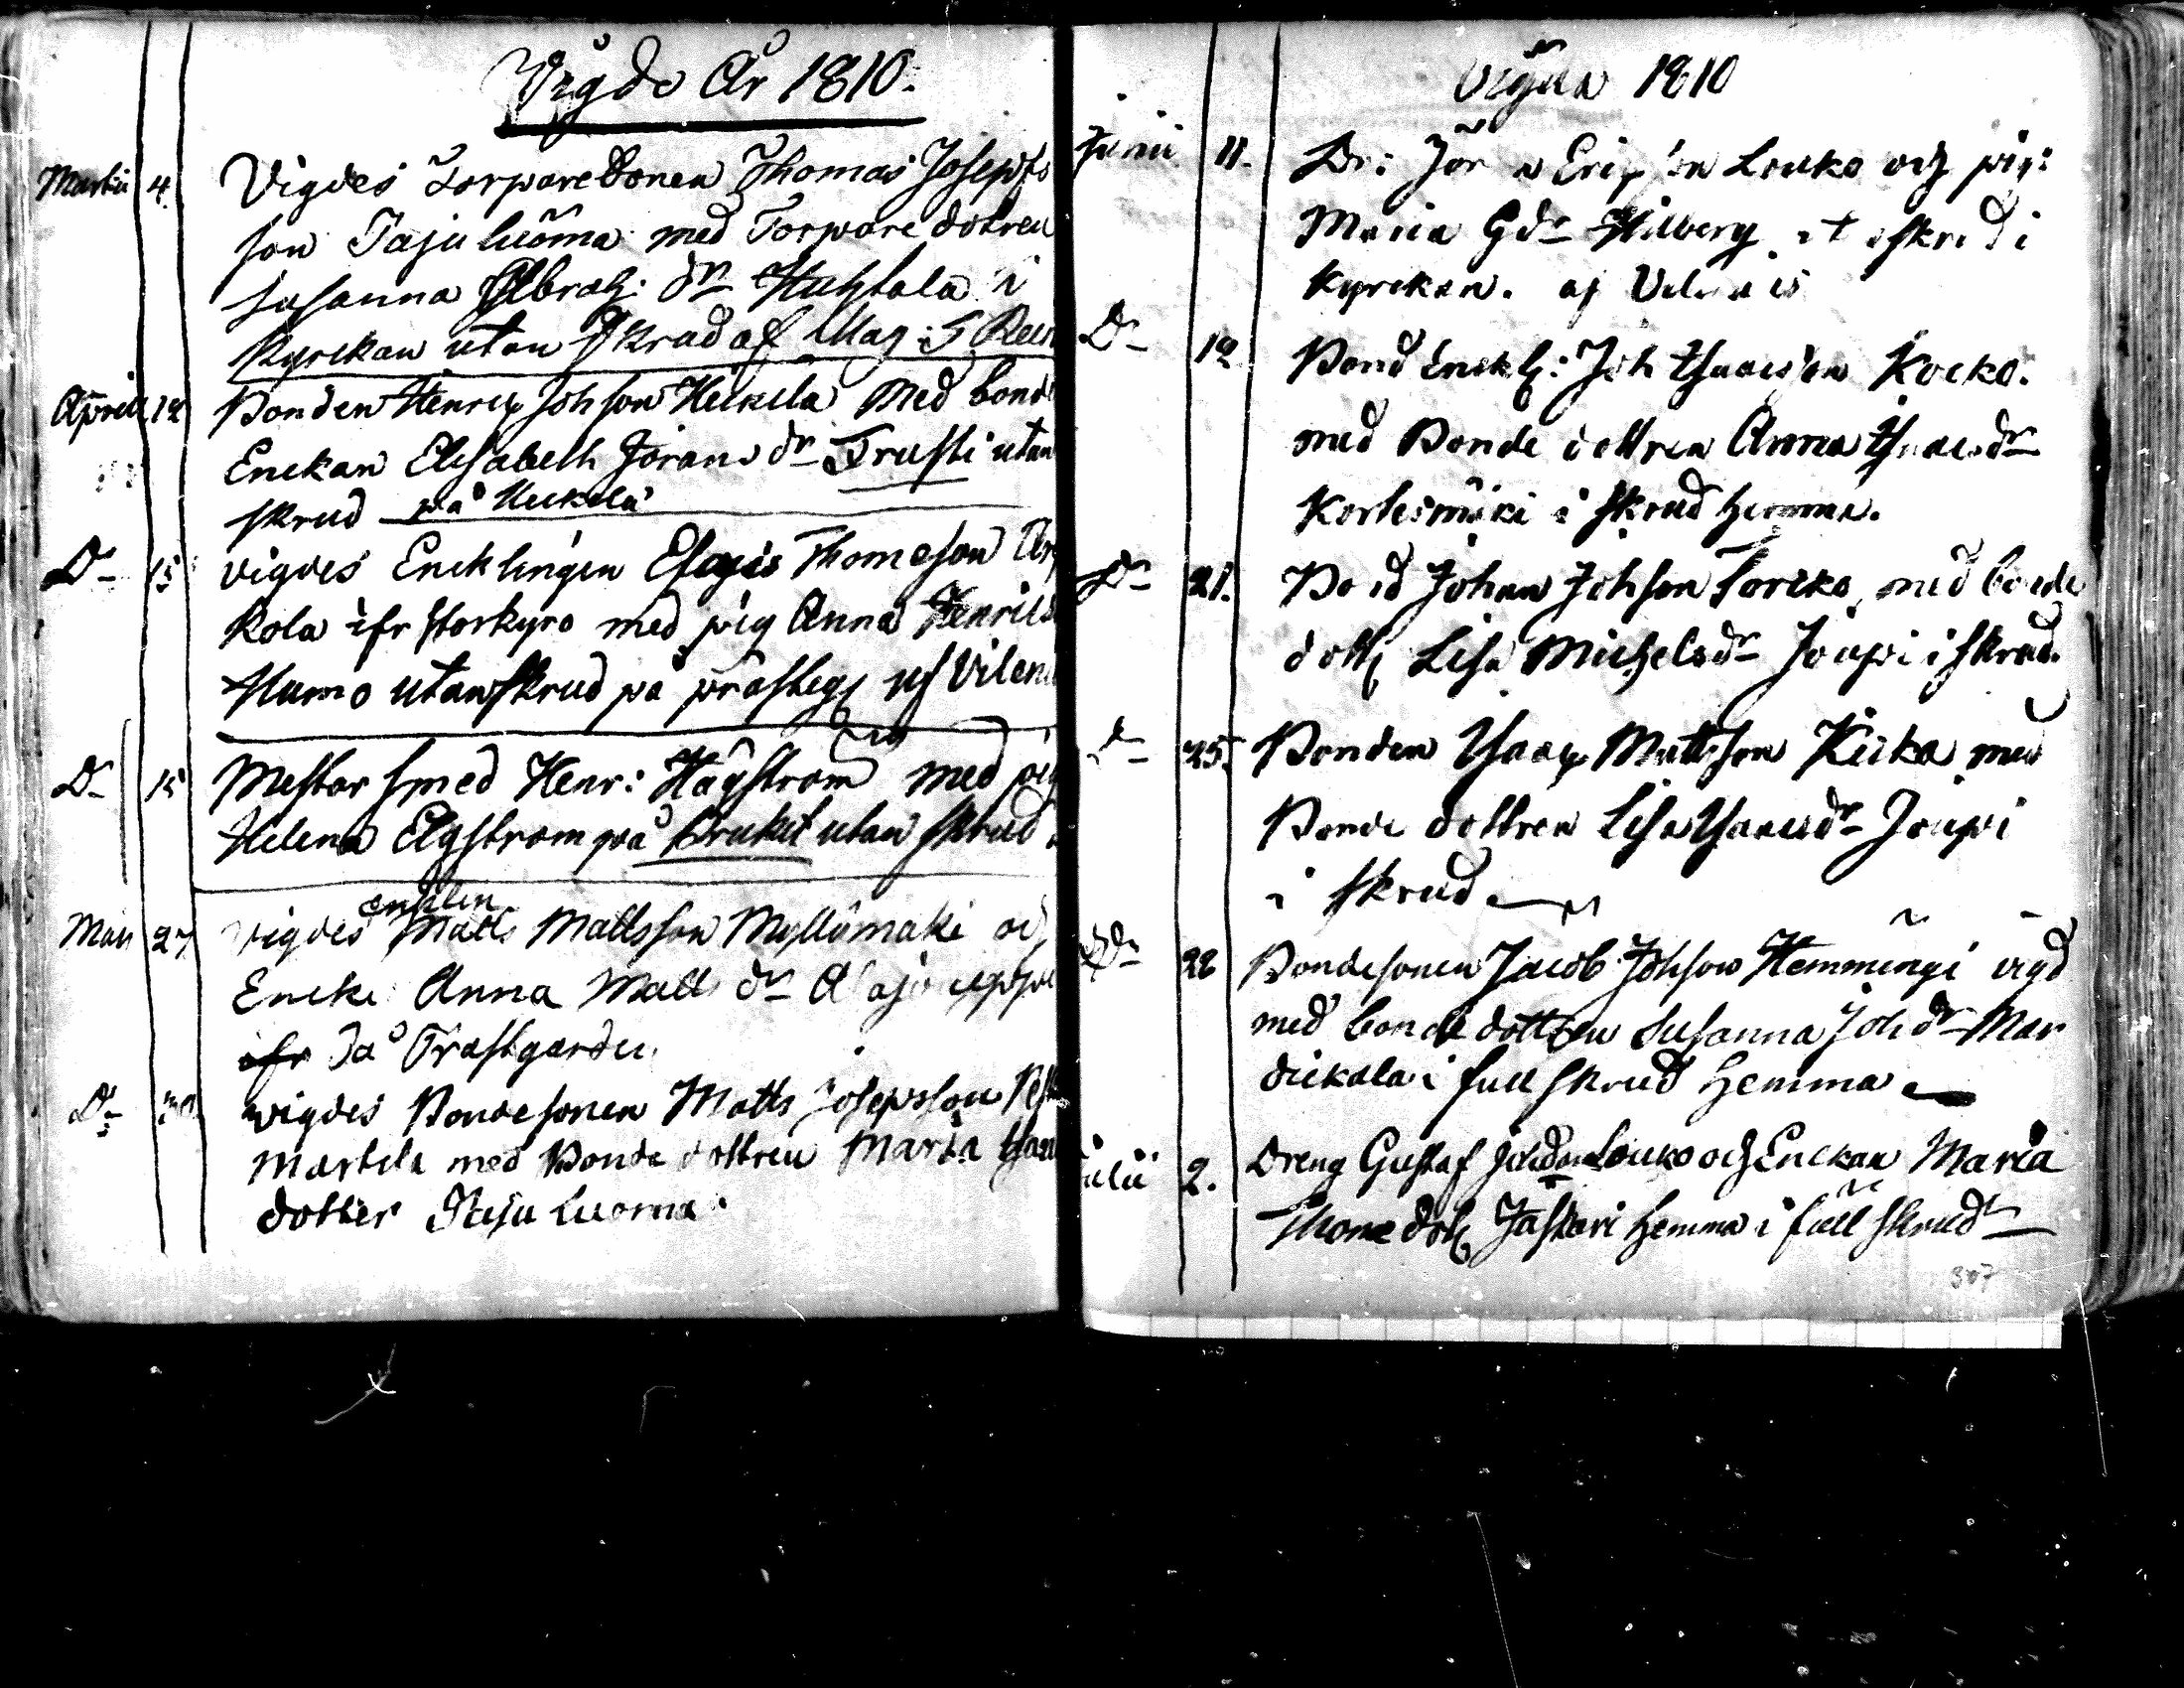 Vigde År 1810.
Martii 4. Vigdes Torparesonen Thomas Josephs
son Pajuluoma med Torpare dotren
Susanna Abrah: dr Huhtala i
Kyrckan utan skrud af Mag:
April 12 Bonden Henric Johson Heikila Med bonde
Enckan Elisabeth Jörans dr Trusti utan
skrud på Heikila
Do 15 vigdes Encklingen Esajas Thomeson
kola ifr storkyro med pig Anna Henrics
Humo utan skrud på prästeg af Vilen
Do 15 Mestar smed Henr: Hägström med pig
Helena Elgström på bruket utan skrud
enklin
Maii 27 vigdes Matts Mattsson Myllümäki och
Encke Anna Matts dr
ifr på Prästgården
Do 30 vigdes Bondesonen Matts Josepsson
Martila med Bonde dottren Maria
dotter Paju Luoma
Vigda 1810
Junii 11. Dr: Jöran Ericsson Louko och pig:
Maria Gdr Hilberg utaskrud i
kyrckan. af Vilenius
Do 12 Bond Enckl: Joh Isaacsson Kocko.
med Bonde dottren Anna Isaacsdr
Kortesmäki i skrud hemma.
Do 21. Bond Johan Johson Torcko, med bonde
dott Lisa Michelsdr Joupi i skrud.
Do 25. Bonden Isaac Mattsson Kicka med
Bonde dottren Lisa Isaacsdr Joupi
i skrud
Do 28 Bondesonen Jacob Johson Hemmingi vigd
med bonde dottren Susanna Joh dr Mar
dickala i full skrud hemma
ulii 2. Dreng Gustaf Louko och Enckan Maria
Thome dott Jaskari hemma i full skrud
307